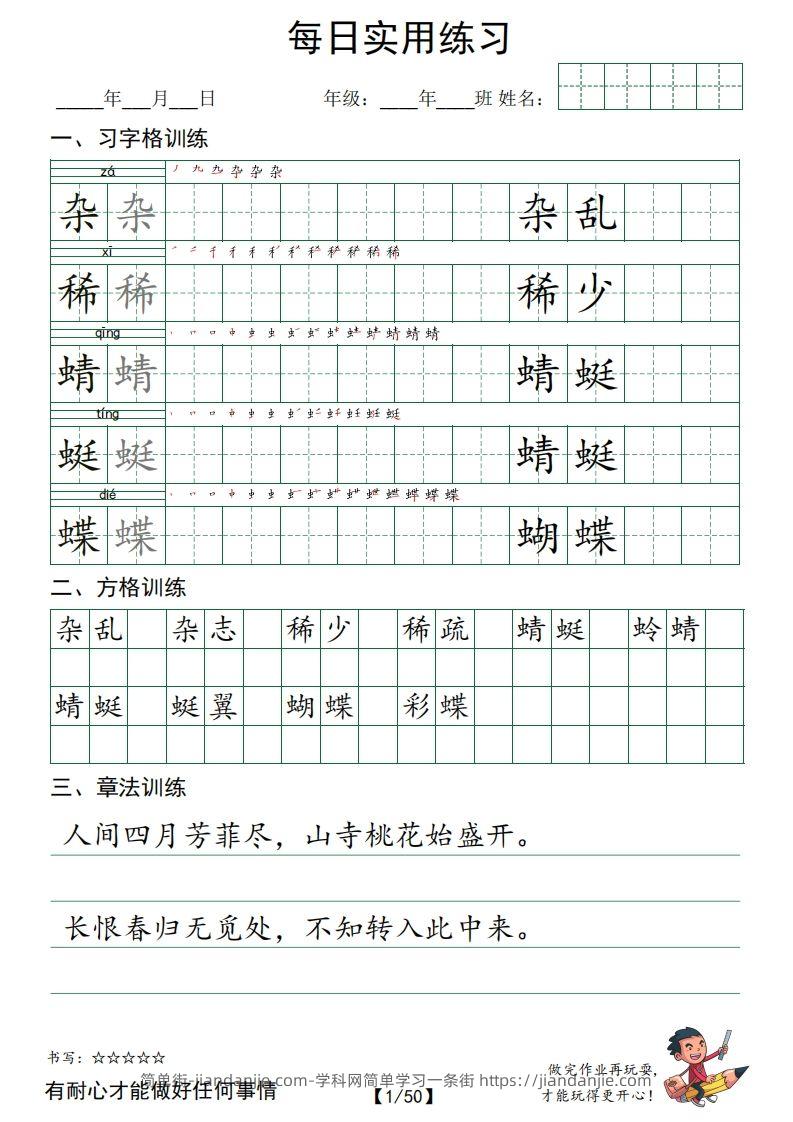 每日实用练习
_____年___月___日 年级：____年____班 姓名：
一、习字格训练
zá
杂 杂 杂 乱
xī
稀 稀 稀 少
qīng
蜻 蜻 蜻 蜓
tíng
蜓 蜓 蜻 蜓
dié
蝶 蝶 蝴 蝶
二、方格训练
杂 乱 杂 志 稀 少 稀 疏 蜻 蜓 蛉 蜻
蜻 蜓 蜓 翼 蝴 蝶 彩 蝶
三、章法训练
人间四月芳菲尽，山寺桃花始盛开。
长恨春归无觅处，不知转入此中来。
书写：☆☆☆☆☆
有耐心才能做好任何事情
简单街-jiandanjie.com-学科网简单学习一条街 https://jiandanjie.com
【1/50】
做完作业再玩耍，
才能玩得更开心！